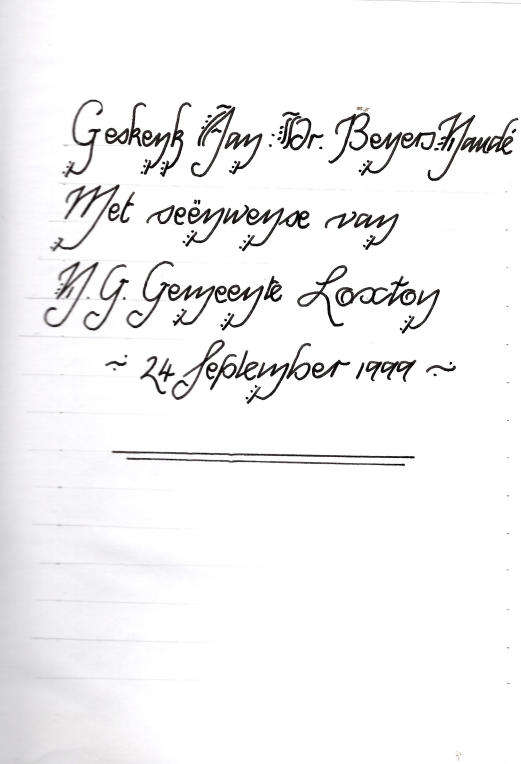 Geskenk Aan: Dr. Beyers Naudé
Met seënwense van
N.G. Gemeente Loxton
~ 24 September 1999 ~